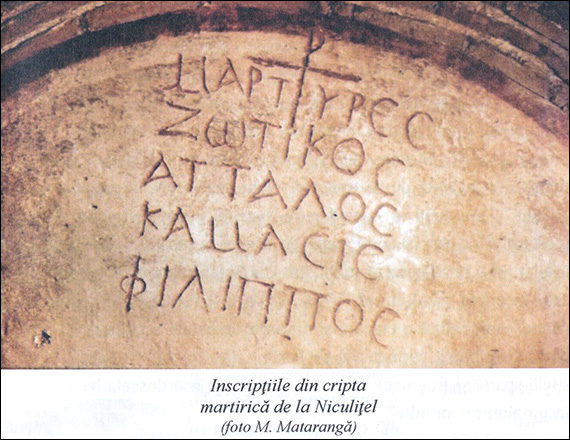 ΜΑΡΤΥΡΕϹ
ΖΩΤΙΚΟϹ
ΑΤΤΑΛΟϹ
ΚΑΜΑϹΙϹ
ΦΙΛΙΠΠΟϹ
Inscripțiile din cripta
martirică de la Niculițel
(foto M. Matarangă)